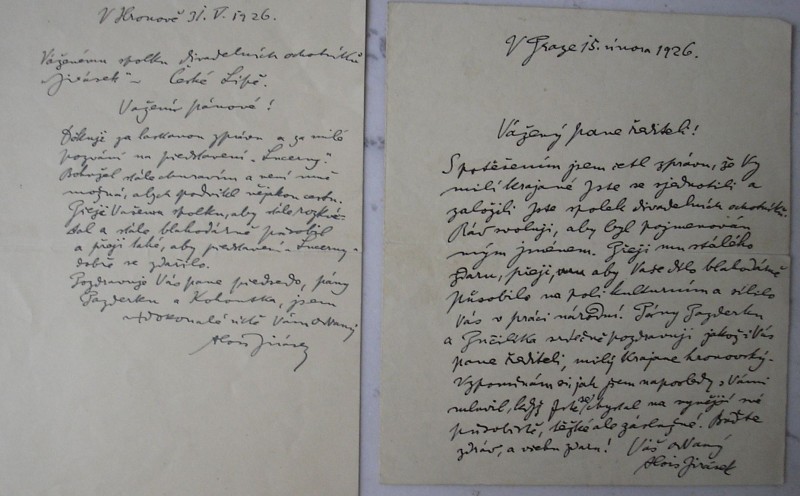 V Hronově 31. V. 1926.
Váženému spolku divadelních ochotníků
"Jirásek" v České Lípě.
Vážení pánové!
Děkuji za laskavou zprávu a za milé
pozvání na představení "Lucerny".
Bohužel stále churavím a není mně
možná, abych podnikl nějakou cestu.
Přeji Vašemu spolku, aby stále rozkvé-
tal a stále blahodárně působil
a přeji také, aby představení "Lucerny"
dobře se zdařilo.
Pozdravuje Vás pane předsedo, pány
Pazderku a jsem
v dokonalé úctě Vám oddaný
Alois Jirásek
V Praze 15. února 1926.
Vážený pane řediteli!
S potěšením jsem četl zprávu, že Vy
milí krajané jste se sjednotili a
založili jste spolek divadelních ochotníků.
Rád svoluji, aby byl pojmenován
mým jménem. Přeji mu stálého
zdaru, přeji, aby Vaše dílo blahodárně
působilo na poli kulturním a sílilo
Vás v práci národní. Pány Pazderku
a srdečně pozdravuji jakož i Vás
pane řediteli, milý krajane hronovský.
Vzpomínám si, jak jsem naposledy s Vámi
mluvil, když jste se chystal na nynější své
působiště, těžké ale záslužné. Buďte
zdráv, a všeho zdaru! Váš oddaný
Alois Jirásek